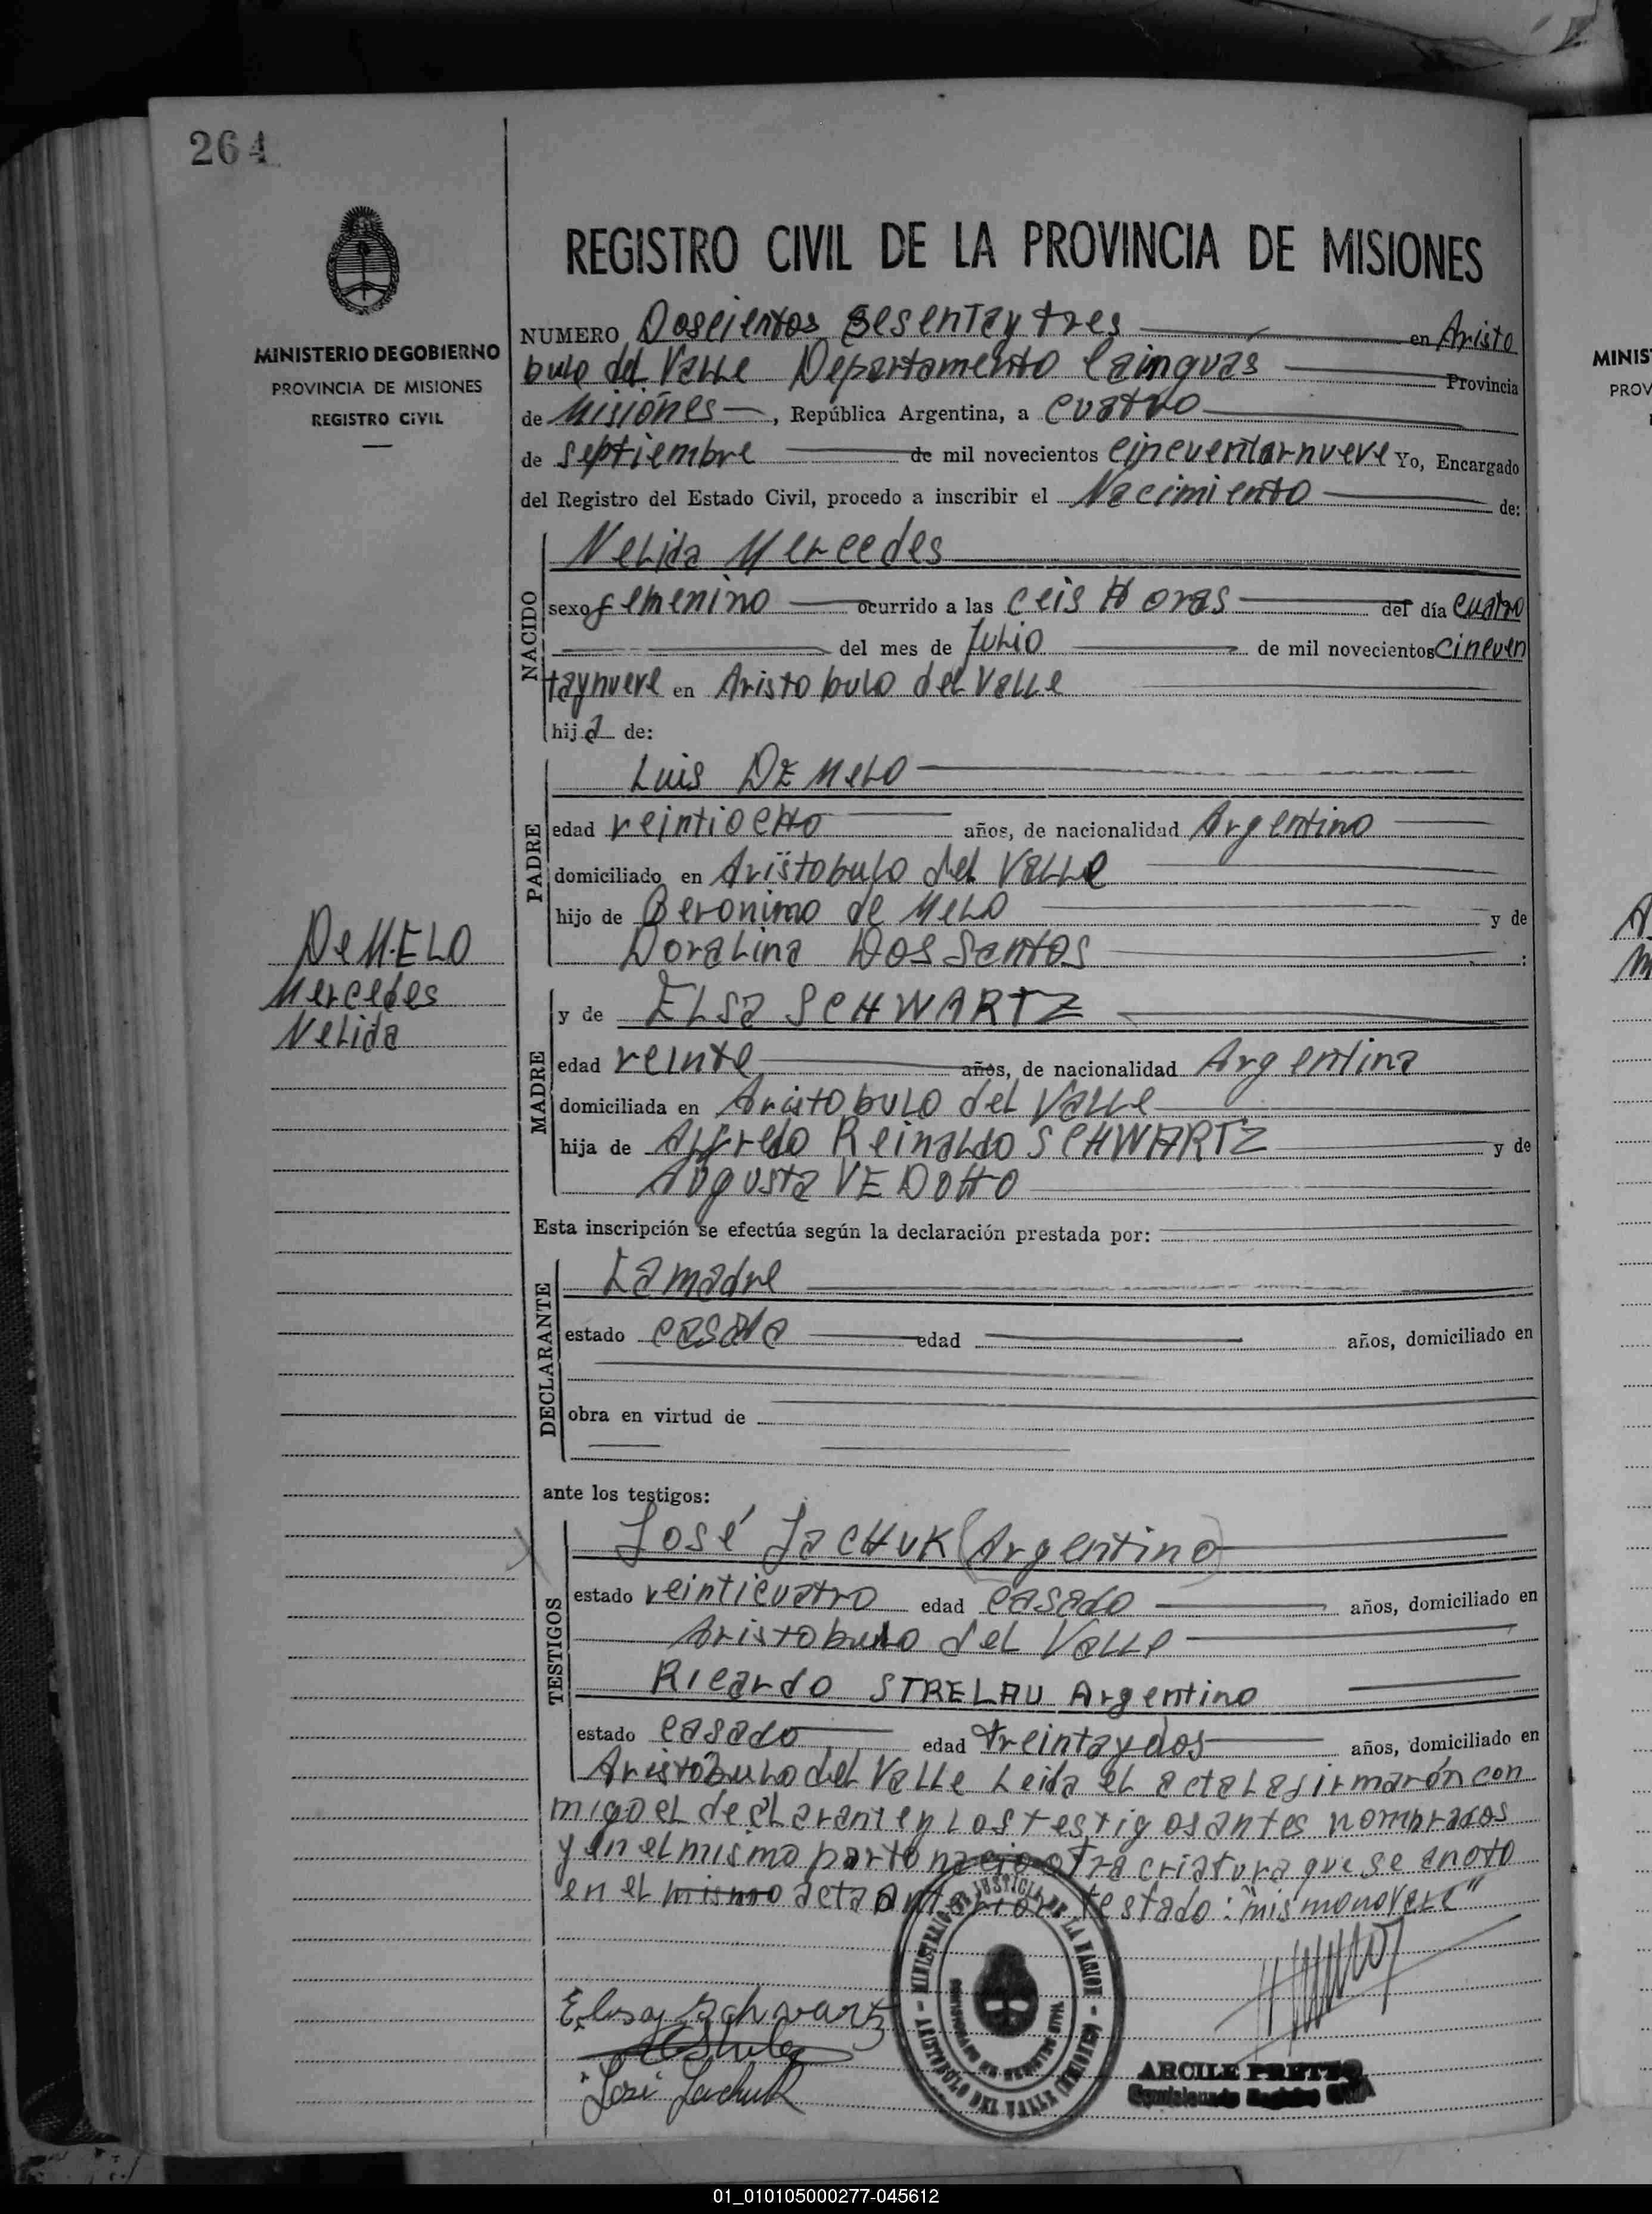 264
REGISTRO CIVIL DE LA PROVINCIA DE MISIONES
MINISTERIO DE GOBIERNO
PROVINCIA DE MISIONES
REGISTRO CIVIL
NUMERO Doscientos Sesentaytres en Aristo
bulo del Valle Departamento Cainguás Provincia
de Misiónes, República Argentina, a cuatro
de septiembre de mil novecientos cincuentaynueve Yo, Encargado
del Registro del Estado Civil, procedo a inscribir el Nacimiento de:
NACIDO
Nelida Mercedes
sexo femenino ocurrido a las ceis Horas del día cuatro
del mes de Julio de mil novecientos cincuen
taynueve en Aristobulo del Valle
hija de:
PADRE
Luis DE MELO
edad veintiocho años, de nacionalidad Argentino
domiciliado en Aristobulo del Valle
hijo de Geronimo de Melo y de
Doralina Dos Santos :
De MELO
Mercedes
Nelida
MADRE
y de ELSA SCHWARTZ
edad veinte años, de nacionalidad Argentina
domiciliada en Aristobulo del Valle
hija de Alfredo Reinaldo SCHWARTZ y de
Augusta VEDOtto
Esta inscripción se efectúa según la declaración prestada por:
DECLARANTE
La madre
estado casada edad años, domiciliado en
obra en virtud de
ante los testigos:
TESTIGOS
José JACHUK (Argentino)
estado veinticuatro edad casado años, domiciliado en
Aristobulo del Valle
Ricardo STRELAU Argentino
estado casado edad treintaydos años, domiciliado en
Aristóbulo del Valle Leida el acta la firmarón con
migo el declarante y los testigos antes nombrados
y en el mismo parto nacio otra criatura que se anoto
en el mismo acta anterior testado: "mismo no vale"
Elsa Schwartz
José Jachuk
MINISTERIO DE JUSTICIA DE LA NACION
ARISTOBULO DEL VALLE (MISIONES)
ARCILE PRETTO
Comisionado Registro Civil
MINIS
PROV
01_010105000277-045612